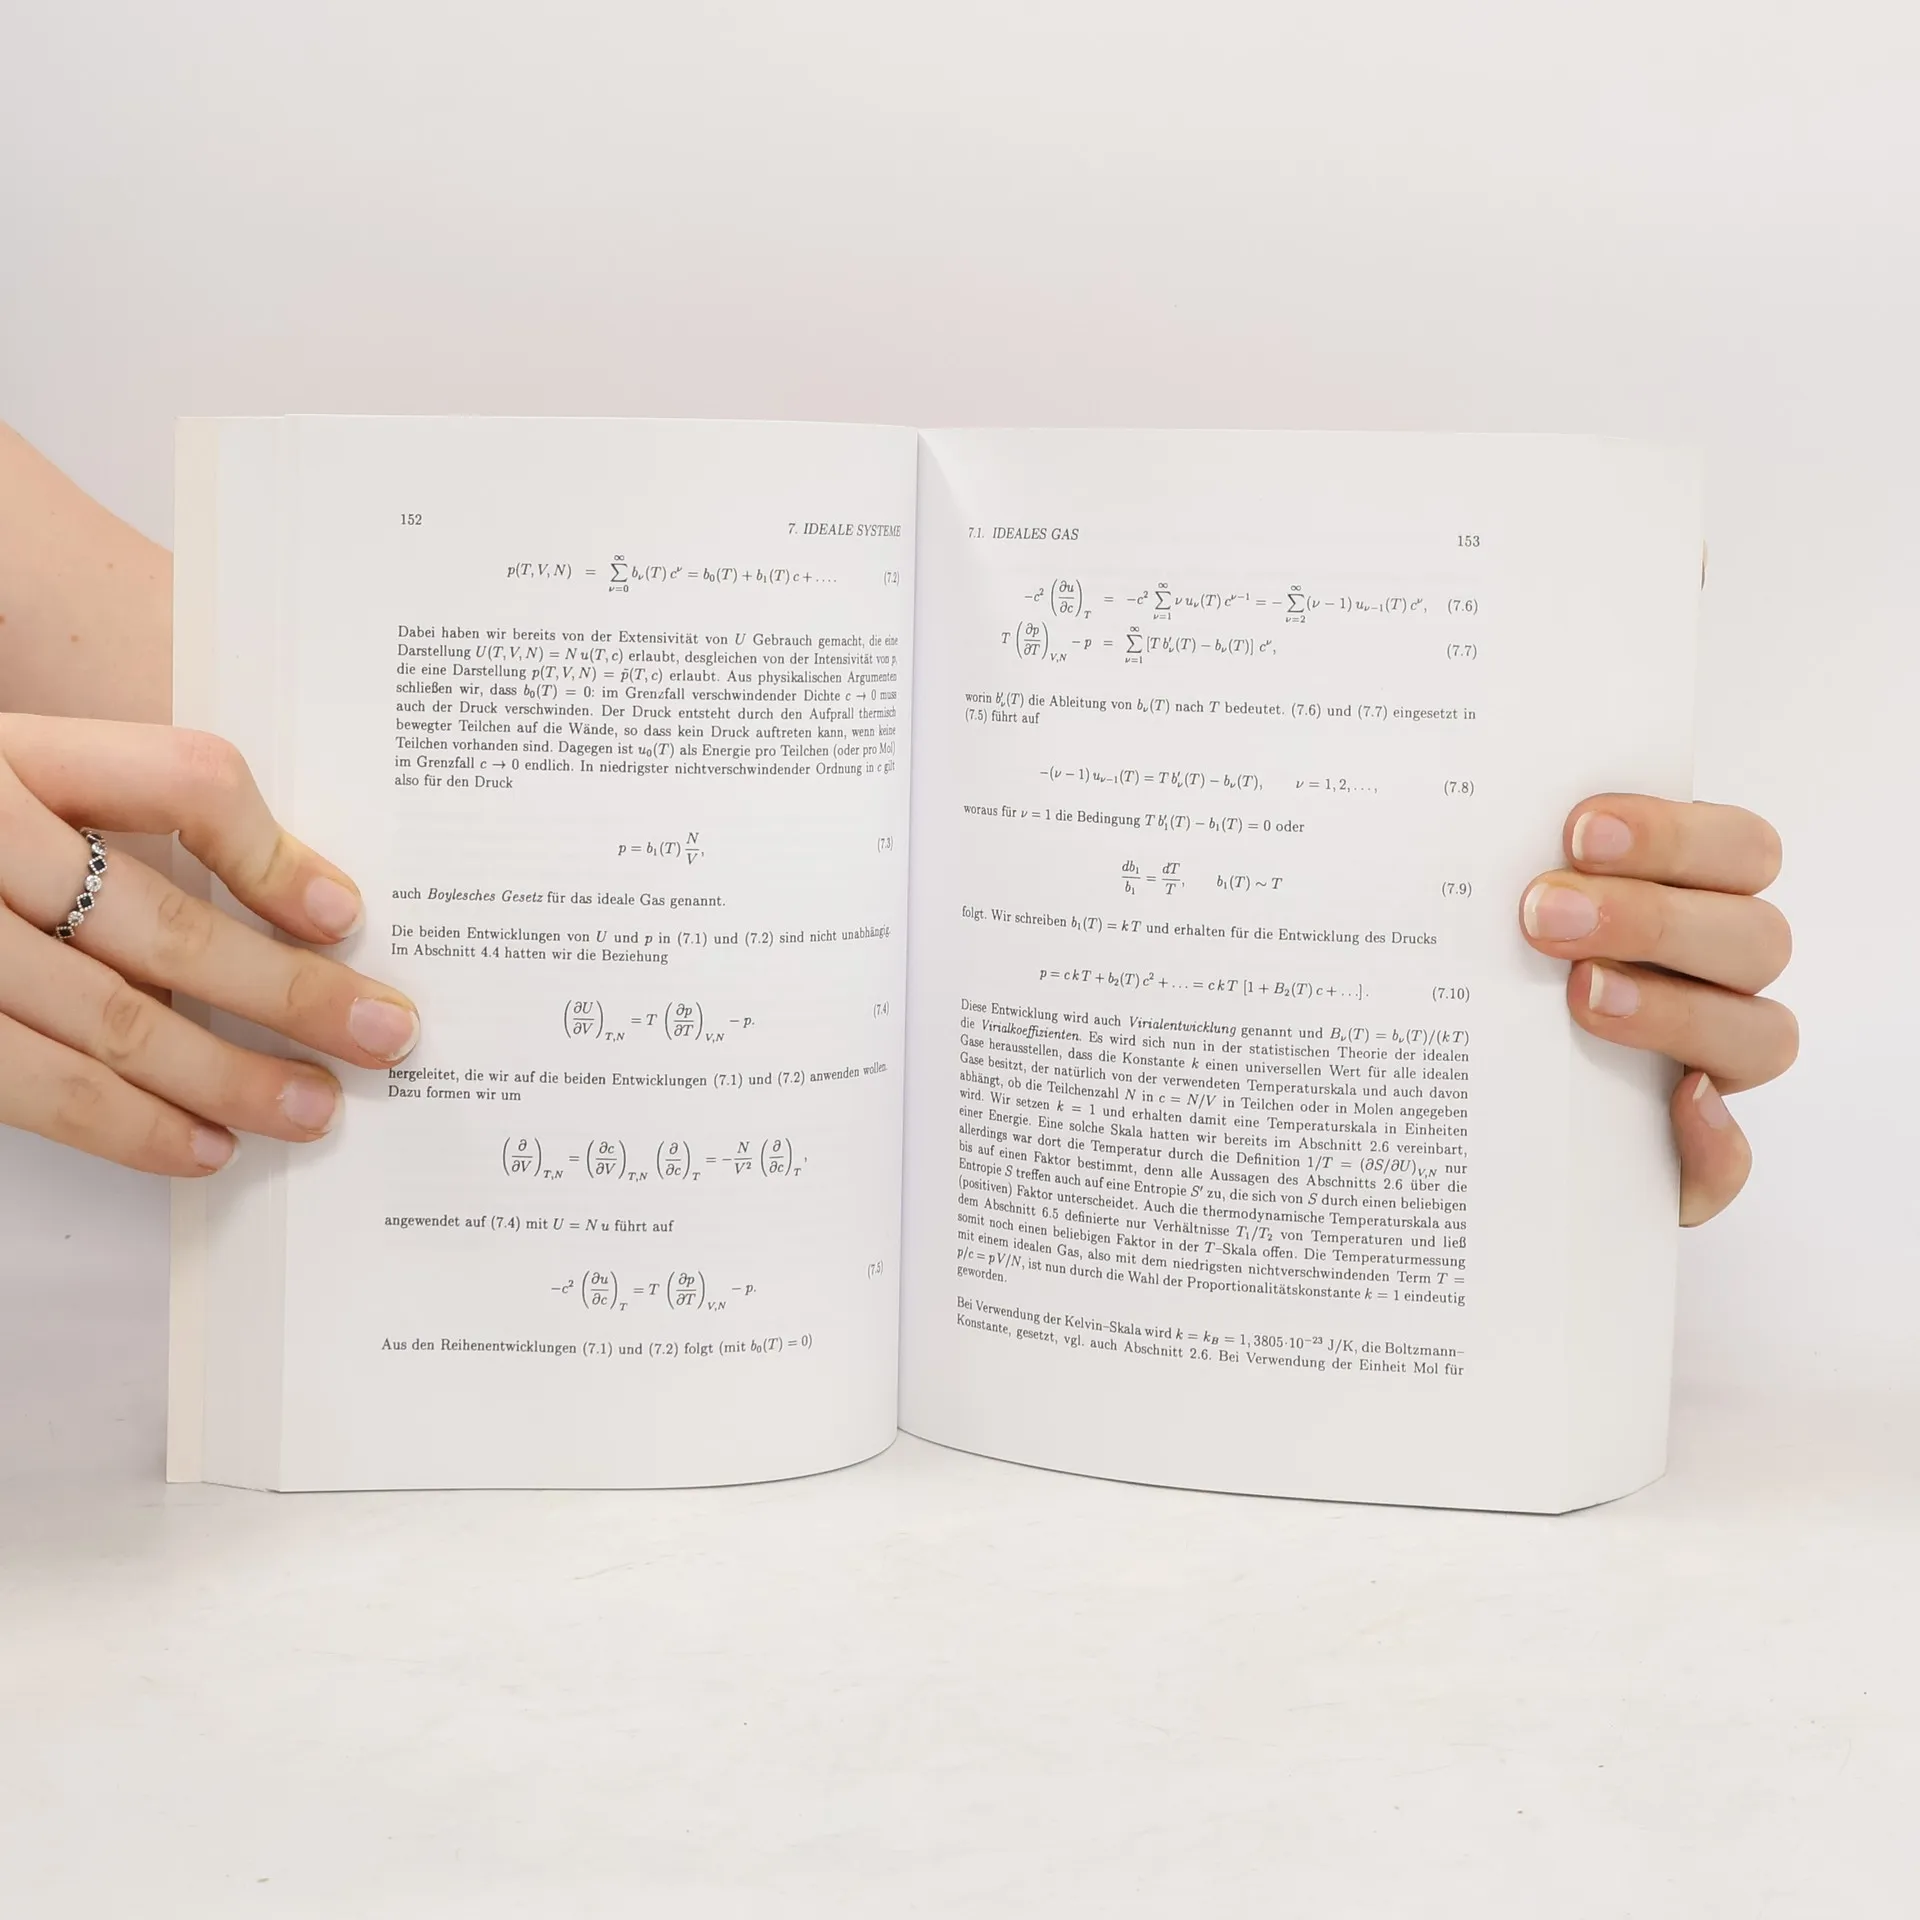 152
7. IDEALE SYSTEME
p(T, V, N) = ∑_{ν=0}^{∞} b_ν(T) c^ν = b_0(T) + b_1(T) c + .... (7.2)
Dabei haben wir bereits von der Extensivität von U Gebrauch gemacht, die eine
Darstellung U(T, V, N) = N u(T, c) erlaubt, desgleichen von der Intensivität von p,
die eine Darstellung p(T, V, N) = p̃(T, c) erlaubt. Aus physikalischen Argumenten
schließen wir, dass b_0(T) = 0: im Grenzfall verschwindender Dichte c → 0 muss
auch der Druck verschwinden. Der Druck entsteht durch den Aufprall thermisch
bewegter Teilchen auf die Wände, so dass kein Druck auftreten kann, wenn keine
Teilchen vorhanden sind. Dagegen ist u_0(T) als Energie pro Teilchen (oder pro Mol)
im Grenzfall c → 0 endlich. In niedrigster nichtverschwindender Ordnung in c gilt
also für den Druck
p = b_1(T) N/V, (7.3)
auch Boylesches Gesetz für das ideale Gas genannt.
Die beiden Entwicklungen von U und p in (7.1) und (7.2) sind nicht unabhängig.
Im Abschnitt 4.4 hatten wir die Beziehung
(∂U/∂V)_{T,N} = T (∂p/∂T)_{V,N} − p. (7.4)
hergeleitet, die wir auf die beiden Entwicklungen (7.1) und (7.2) anwenden wollen.
Dazu formen wir um
(∂/∂V)_{T,N} = (∂c/∂V)_{T,N} (∂/∂c)_T = −N/V² (∂/∂c)_T,
angewendet auf (7.4) mit U = N u führt auf
−c² (∂u/∂c)_T = T (∂p/∂T)_{V,N} − p. (7.5)
Aus den Reihenentwicklungen (7.1) und (7.2) folgt (mit b_0(T) = 0)
7.1. IDEALES GAS
153
−c² (∂u/∂c)_T = −c² ∑_{ν=1}^{∞} ν u_ν(T) c^{ν−1} = − ∑_{ν=2}^{∞} (ν − 1) u_{ν−1}(T) c^ν, (7.6)
T (∂p/∂T)_{V,N} − p = ∑_{ν=1}^{∞} [T b′_ν(T) − b_ν(T)] c^ν, (7.7)
worin b′_ν(T) die Ableitung von b_ν(T) nach T bedeutet. (7.6) und (7.7) eingesetzt in
(7.5) führt auf
−(ν − 1) u_{ν−1}(T) = T b′_ν(T) − b_ν(T), ν = 1, 2, . . . , (7.8)
woraus für ν = 1 die Bedingung T b′_1(T) − b_1(T) = 0 oder
db_1/b_1 = dT/T, b_1(T) ∼ T (7.9)
folgt. Wir schreiben b_1(T) = k T und erhalten für die Entwicklung des Drucks
p = c k T + b_2(T) c² + . . . = c k T [1 + B_2(T) c + . . .] . (7.10)
Diese Entwicklung wird auch Virialentwicklung genannt und B_ν(T) = b_ν(T)/(k T)
die Virialkoeffizienten. Es wird sich nun in der statistischen Theorie der idealen
Gase herausstellen, dass die Konstante k einen universellen Wert für alle idealen
Gase besitzt, der natürlich von der verwendeten Temperaturskala und auch davon
abhängt, ob die Teilchenzahl N in c = N/V in Teilchen oder in Molen angegeben
wird. Wir setzen k = 1 und erhalten damit eine Temperaturskala in Einheiten
einer Energie. Eine solche Skala hatten wir bereits im Abschnitt 2.6 vereinbart,
allerdings war dort die Temperatur durch die Definition 1/T = (∂S/∂U)_{V,N} nur
bis auf einen Faktor bestimmt, denn alle Aussagen des Abschnitts 2.6 über die
Entropie S treffen auch auf eine Entropie S′ zu, die sich von S durch einen beliebigen
(positiven) Faktor unterscheidet. Auch die thermodynamische Temperaturskala aus
dem Abschnitt 6.5 definierte nur Verhältnisse T_1/T_2 von Temperaturen und ließ
somit noch einen beliebigen Faktor in der T–Skala offen. Die Temperaturmessung
mit einem idealen Gas, also mit dem niedrigsten nichtverschwindenden Term T =
p/c = p V/N, ist nun durch die Wahl der Proportionalitätskonstante k = 1 eindeutig
geworden.
Bei Verwendung der Kelvin–Skala wird k = k_B = 1, 3805·10⁻²³ J/K, die Boltzmann–
Konstante, gesetzt, vgl. auch Abschnitt 2.6. Bei Verwendung der Einheit Mol für